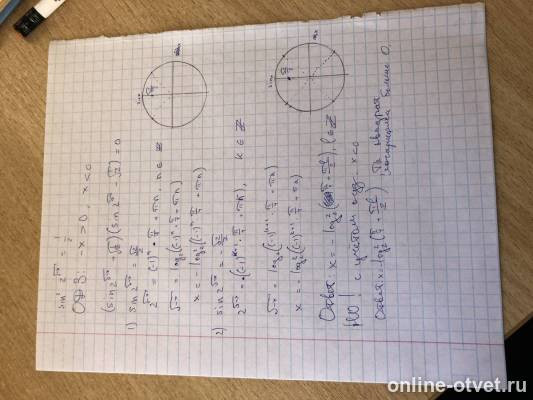 sin² 2^√-x = 1/2
ОДЗ: -x > 0, x < 0
(sin 2^√-x - √1/2)(sin 2^√-x + √1/2) = 0
1) sin 2^√-x = √2/2
2^√-x = (-1)ⁿ · π/4 + πn, n ∈ Z
√-x = log₂((-1)ⁿ · π/4 + πn)
x = -log₂²((-1)ⁿ π/4 + πn)
2) sin 2^√-x = -√2/2
2^√-x = (-1)^k+1 · π/4 + πk, k ∈ Z
√-x = log₂((-1)^k+1 · π/4 + πk)
x = -log₂²((-1)^k+1 π/4 + πk)
Ответ: x = -log₂²(π/4 + πl/2), l ∈ Z
НО! с учетом одз: x < 0
Ответ: x = -log₂²(π/4 + πl/2). Тк квадрат
логарифма больше 0.
sin
sin
online-otvet.ru